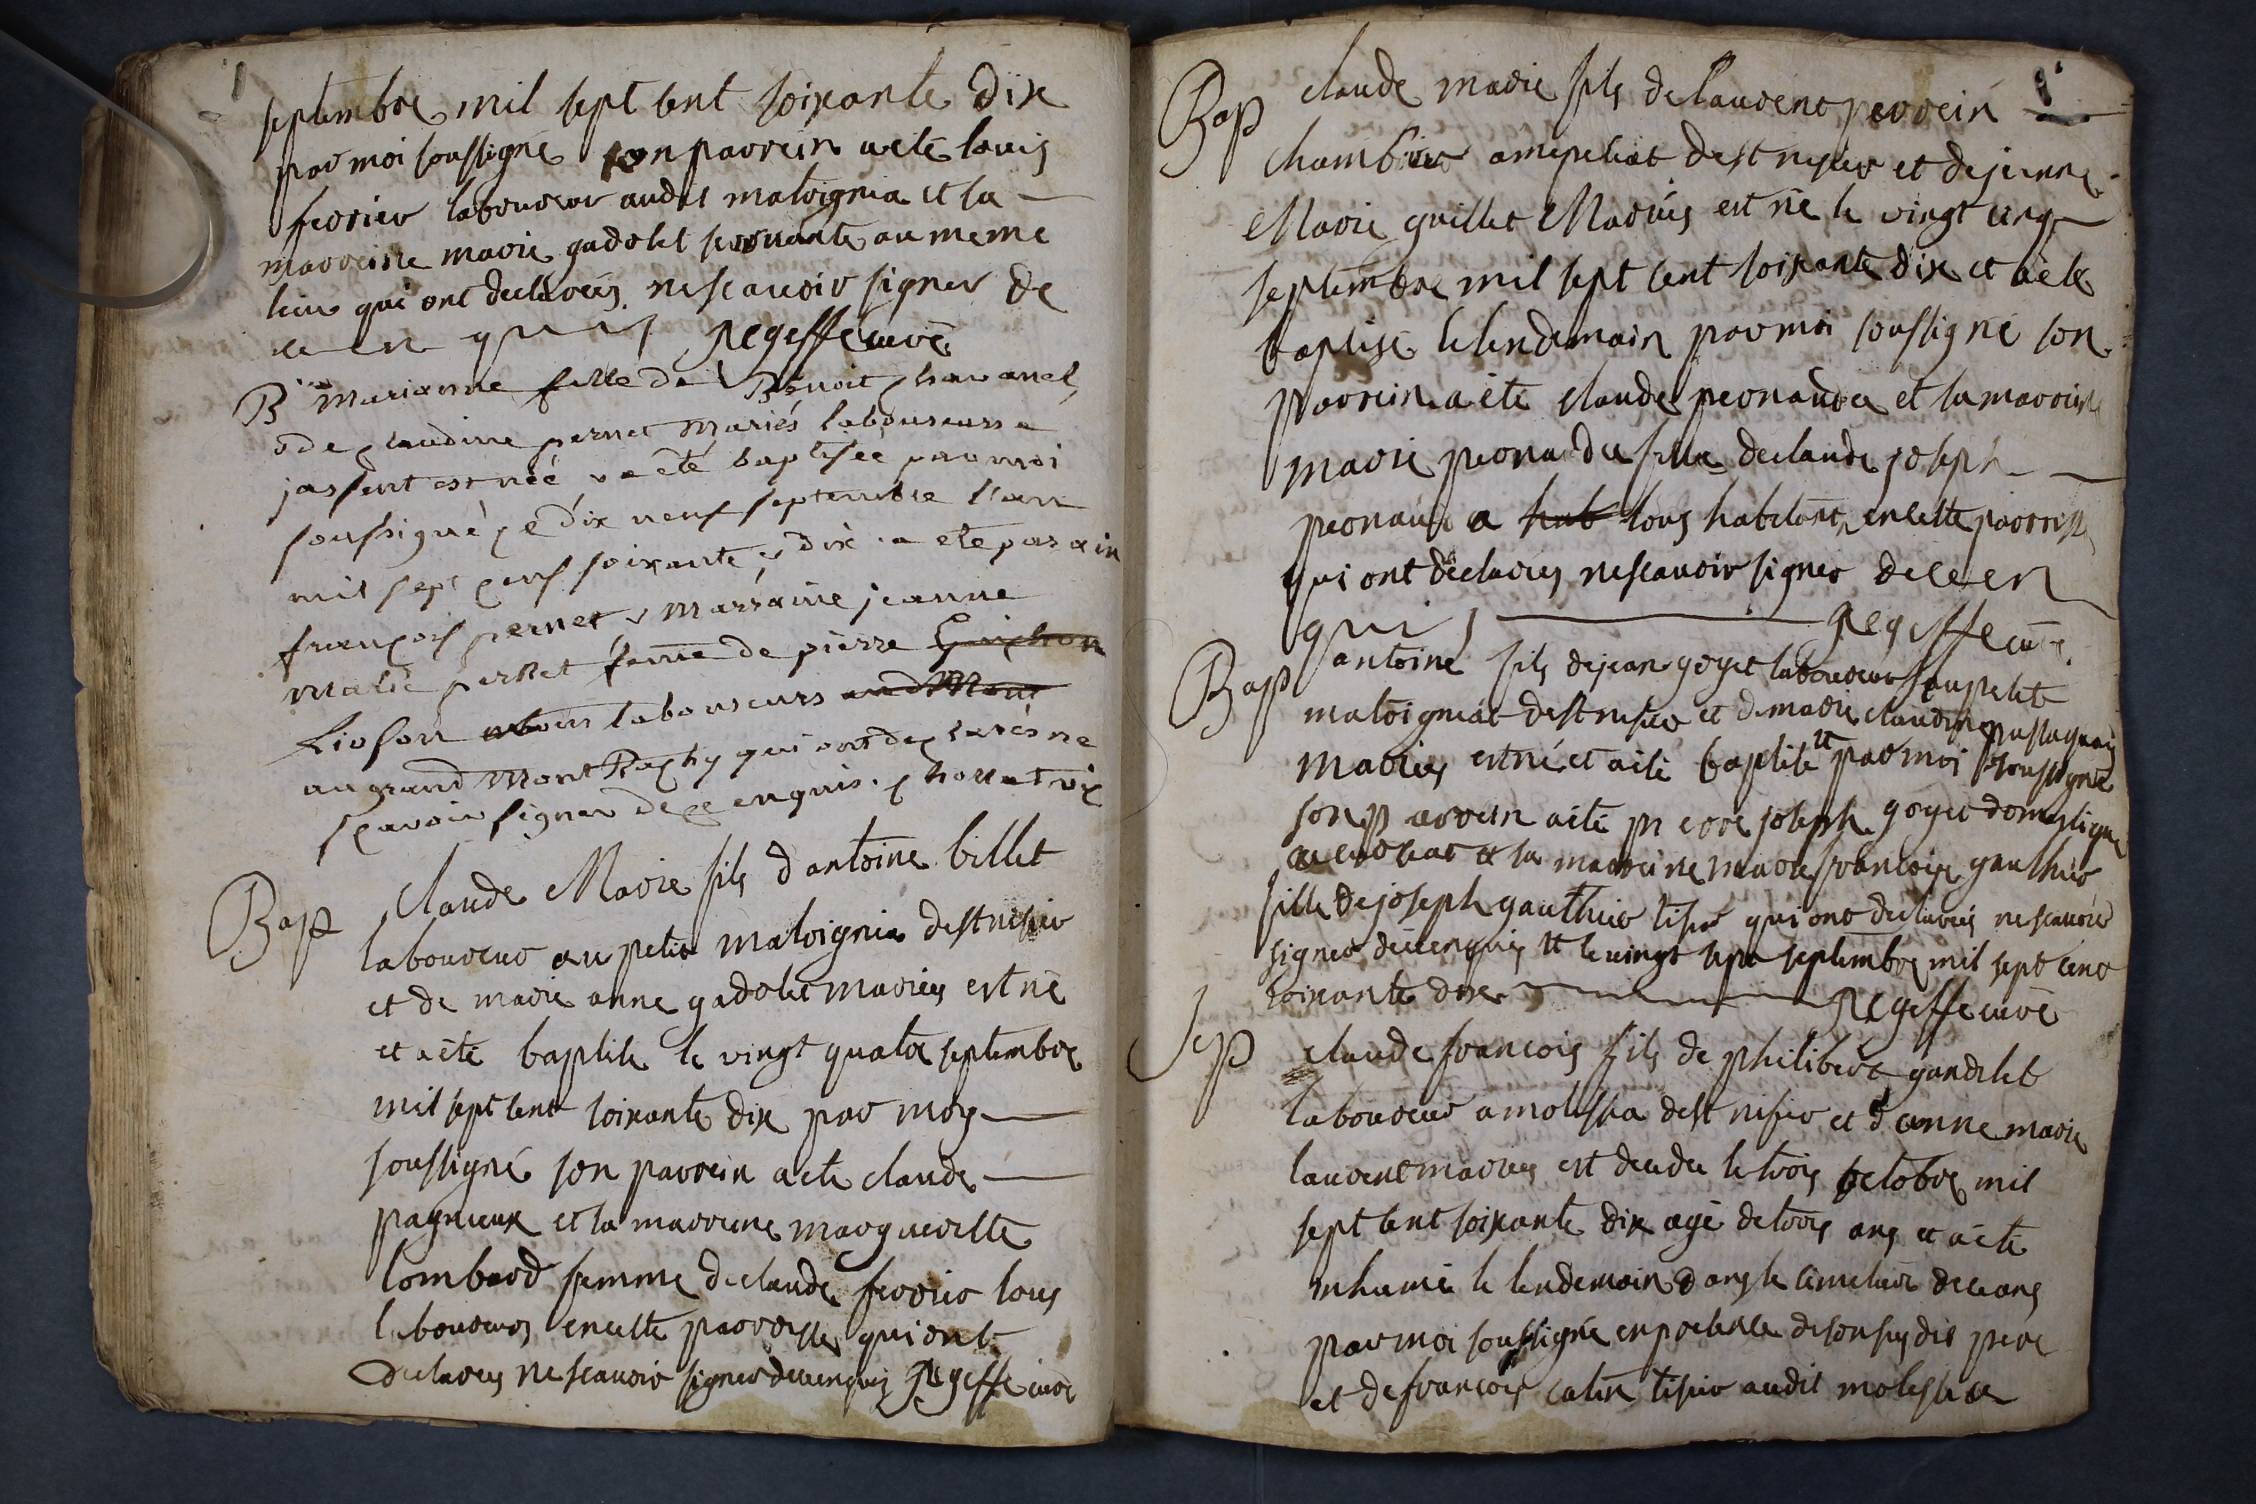 septembre mil sept cent soixante dix
par moi soussigné son parrein a eté louis
ferrier laboureur audit malvignia et la
marreine marie gadolet servante au meme
lieu qui ont declarées ne scavoir signer de
ce en quis Regeffe curé
B Marianne fille de Benoit chavanel
& de claudine pernet mariés laboureurs a
jassent est née & a été baptisée par moi
soussigné le dix neuf septembre l'an
mil sept cens soixante & dix a eté parain
françois pernet & marraine jeanne
marie perret femme de pierre Guichon
Lioson tous laboureurs aud Mont
au grand mont Rachy qui ont declarés ne
scavoir signer de ce enquis
Bap Claude Marie fils d'antoine billet
laboureur au petit malvignia dest nisier
et de marie anne gadolet mariés est né
et a été baptisé le vingt quatre septembre
mil sept cent soixante dix par moy
soussigné son parrein a eté claude
pagneux et la marreine margueritte
lombard femme de claude ferrier tous
laboureurs en cette parroisse qui ont
declarés ne scavoir signer de ce enquis Regeffe curé
Bap claude marie fils de laurent perrein
chambier a mepillat dest nisier et de jeanne
Marie guillet Mariés est né le vingt cinq
septembre mil sept cent soixante dix et a été
baptisé le lendemain par moi soussigné son
parrein a été claude peonaud et la marreine
marie peonaud fille de claude joseph
peonaud a hab tous habitans en cette parroisse
qui ont declarées ne scavoir signer de ce en
quis Regeffe curé
Bap antoine fils de jean goyet laboureur au petit
malvigniat dest nisier et de marie claudine
Mariés est né et a été baptisé tt par moi soussigné
son parrein a été pierre joseph goyet domestique
et la marreine marie francoise gauthier
fille de joseph gauthier tisier qui ont declarés ne scavoir
signer de ce enquis tt le vingt sept septembre mil sept cent
soixante dix Regeffe curé
Sep claude francois fils de philibert gandelet
laboureur a molissia dest nisier et d'anne marie
laurent mariés est decedé le trois octobre mil
sept cent soixante dix agé de trois ans et a été
inhumé le lendemain dans le cimetiere de ceans
par moi soussigné en presence de son susdit pere
et de francois catin tisier audit molissia